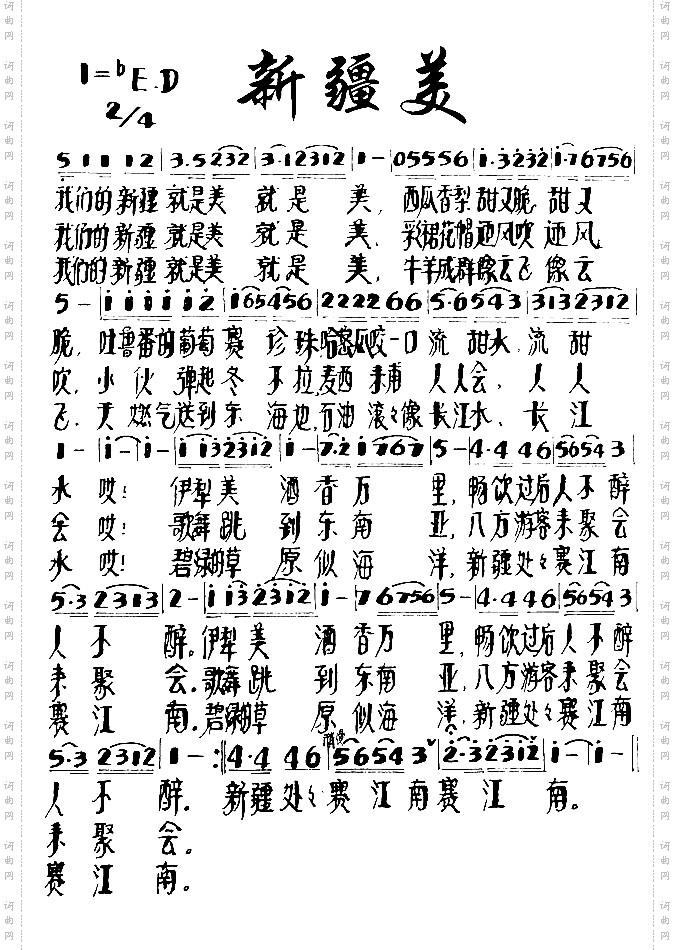 新疆美
1=ᵇE.D
2/4
5 1 1 1 2 | 3·5 2 3 2 | 3·1 2 3 1 2 | 1 - | 0 5 5 5 5 6 | 1·3 2 3 2 | 1·7 6 7 5 6
我们的新疆就是美 就是 美，西瓜香梨甜又脆 甜又
我们的新疆就是美 就是 美，彩裙花帽迎风吹 迎风
我们的新疆就是美 就是 美，牛羊成群像云飞 像云
5 - | 1 1 1 1 1 2 | 1 1 6 5 4 5 6 | 2 2 2 2 6 6 | 5·6 5 4 3 | 3 1 3 2 3 1 2
脆，吐鲁番的葡萄赛 珍珠哈密瓜咬一口流 甜水，流 甜
吹，小伙 弹起冬 不拉，麦西来甫 人人会，人人
飞，天然气送到东 海也，石油滚々像长江水，长江
1 - | 1 - | 1 - | 1 1 3 2 3 1 2 | 1 - | 7·2 1 7 6 7 | 5 - | 4·4 4 6 | 5 6 5 4 3
水 哎！ 伊犁美 酒香万 里，畅饮过后人不醉
会 哎！ 歌舞跳 到东南 亚，八方游客来聚会
水 哎！ 碧绿的草 原似海 洋，新疆处々赛江南
5·3 2 3 1 3 | 2 - | 1 1 3 2 3 1 2 | 1 - | 7 6 7 5 6 | 5 - | 4·4 4 6 | 5 6 5 4 3
人不 醉。伊犁美 酒香万 里，畅饮过后人不醉
来聚 会。歌舞跳 到东南 亚，八方游客来聚会
赛江 南。碧绿的草 原似海 洋，新疆处々赛江南
5·3 2 3 1 2 | 1 - :‖ 4·4 4 6 | 5 6 5 4 3 | 2·3 2 3 1 2 | 1 - | 1 - |
人不 醉。新疆处々赛江南赛江 南。
来聚 会。
赛江 南。
词曲网